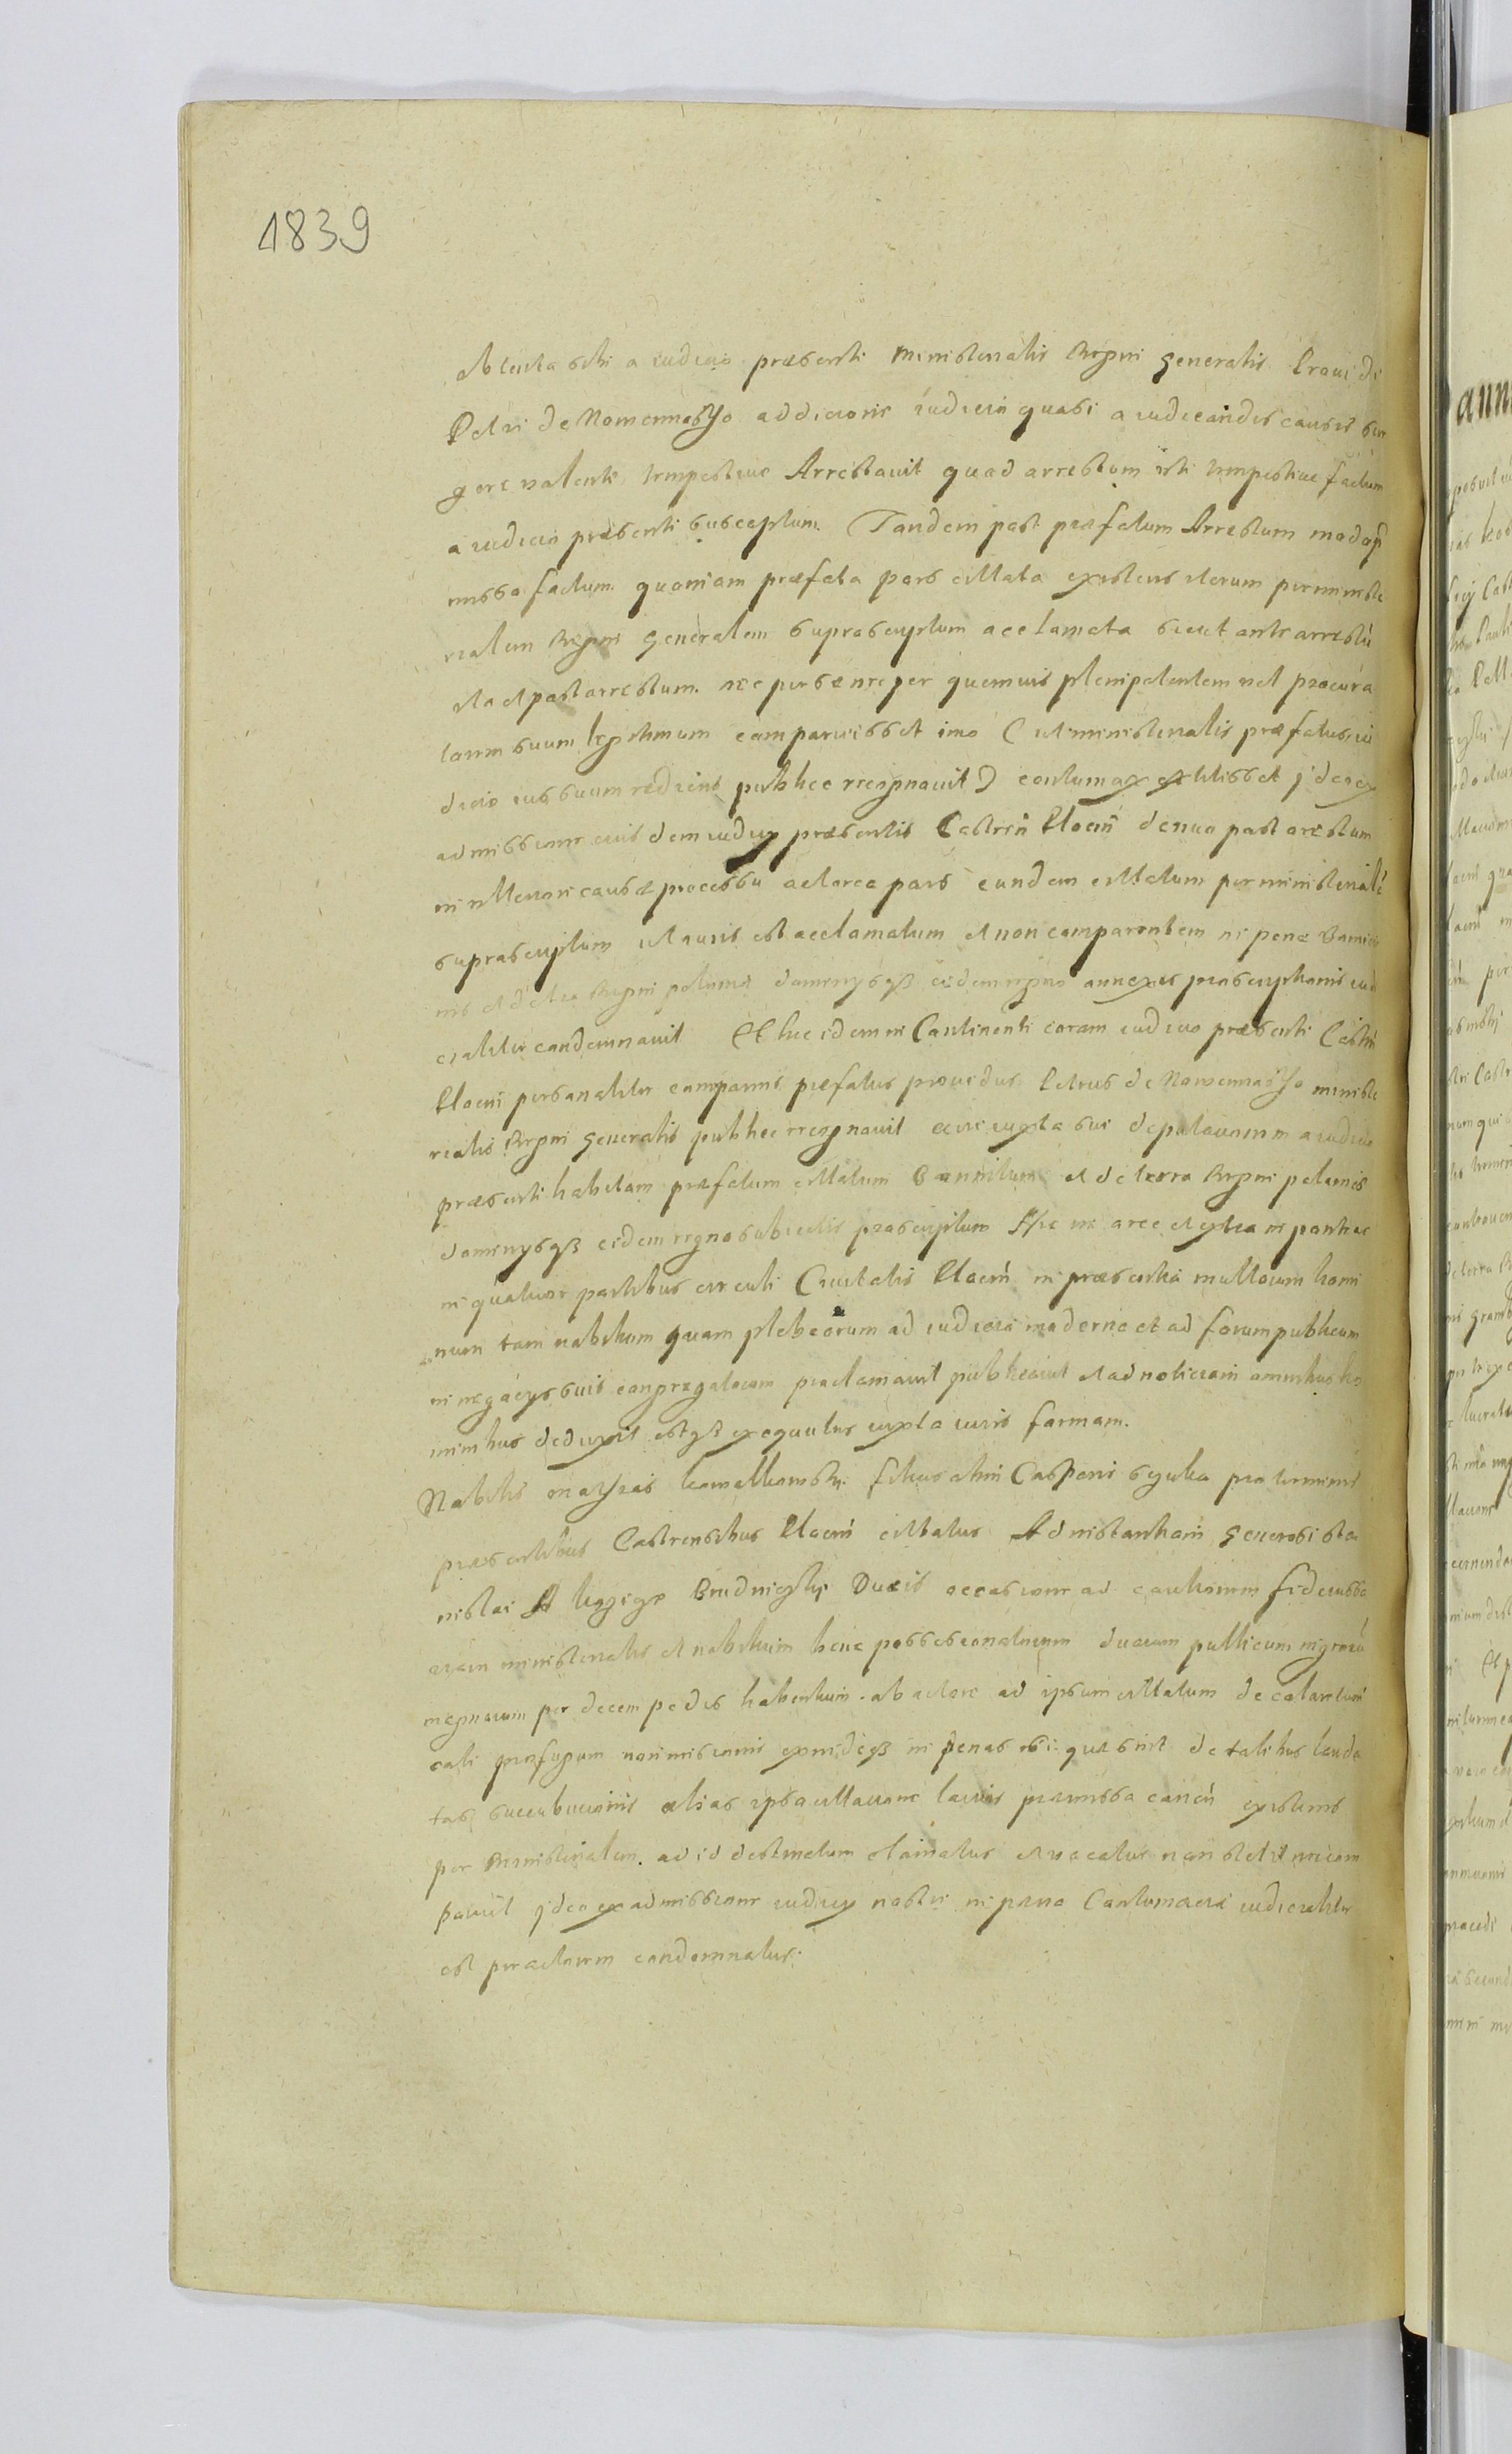 1839
obtenta sibi a iudicio præsenti ministerialis Regni generalis Providi
Petri de Nowemiasto addicione iudicia quasi a iudicandis causis sur
gere volente tempestive Arrestavit quod arrestum isti tempestive factum
a iudicio præsenti susceptum. Tandem post præfatum Arrestum modo p
missa factum. quoniam præfata pars cittata existens iterum per ministe
rialem Regni generalem suprascriptum acclamata sicut ante arrestū
ita et post arrestum. nec per se nec per quemvis plenipotentem vel procura
torem suum legittimum comparuisset imo (ut ministerialis præfatus iu
dicio ius suum rediens publice recognavit) contumax extitisset ideo ex
admissione eiusdem iudicij præsentis Castren Plocen denuo post arestum
in ulteriori causæ processu actorea pars eundem cittatum per ministerialē
suprascriptum et iuris est acclamatum et non comparentem in pena Banicio
nis et de terra Regni poloniæ dominijsqz eidem regno annexis proscriptionis iudi
cialiter condemnavit Et hic idem in Continenti coram iudicio præsenti Castren
Plocen personaliter comparens præfatus providus Petrus de Nowemiasto ministe
rialis Regni generalis publice recognavit quia iuxta sui deputacionem a iudicio
præsenti habitam præfatum cittatum Bannitum et de terra Regni polonies
dominijsqz eidem regno subiectis proscriptum Hic in arce et extra in ponte ac
in quatuor partibus circuli Civitatis Plocen in præsentia multorum homi
num tam nobilium quam plebeorum ad iudicia moderna et ad forum publicum
in negocijs suis congregatorum proclamavit publicavit et ad noticiam omnibus ho
minibus deduxit estqz exequutus iuxta iuris formam.
Nobilis filius olim Casperi pro terminis
præsentibus Castrensibus Plocen cittatus Ad instantiam generosi Sta
nislai A Brudnicki Ducis occasione ad cautionem fideiusso
riam ministerialis et nobilium bene possessionatorum duorum pullicum nigrorū
magnorum per decem pedes habentium. ab actore ad ipsum cittatum
profugum non missionis exindeqz in penas quæ sint de talibus lauda
tas succubucionis alias ipsa cittacione latius præmissa existens
per ministerialem. ad id destinatum clamatus et vocatus non stetit nec com
paruit ideo ex admissione iudicij nostri in pena Contumacia iudicialiter
est per actorem condemnatus.